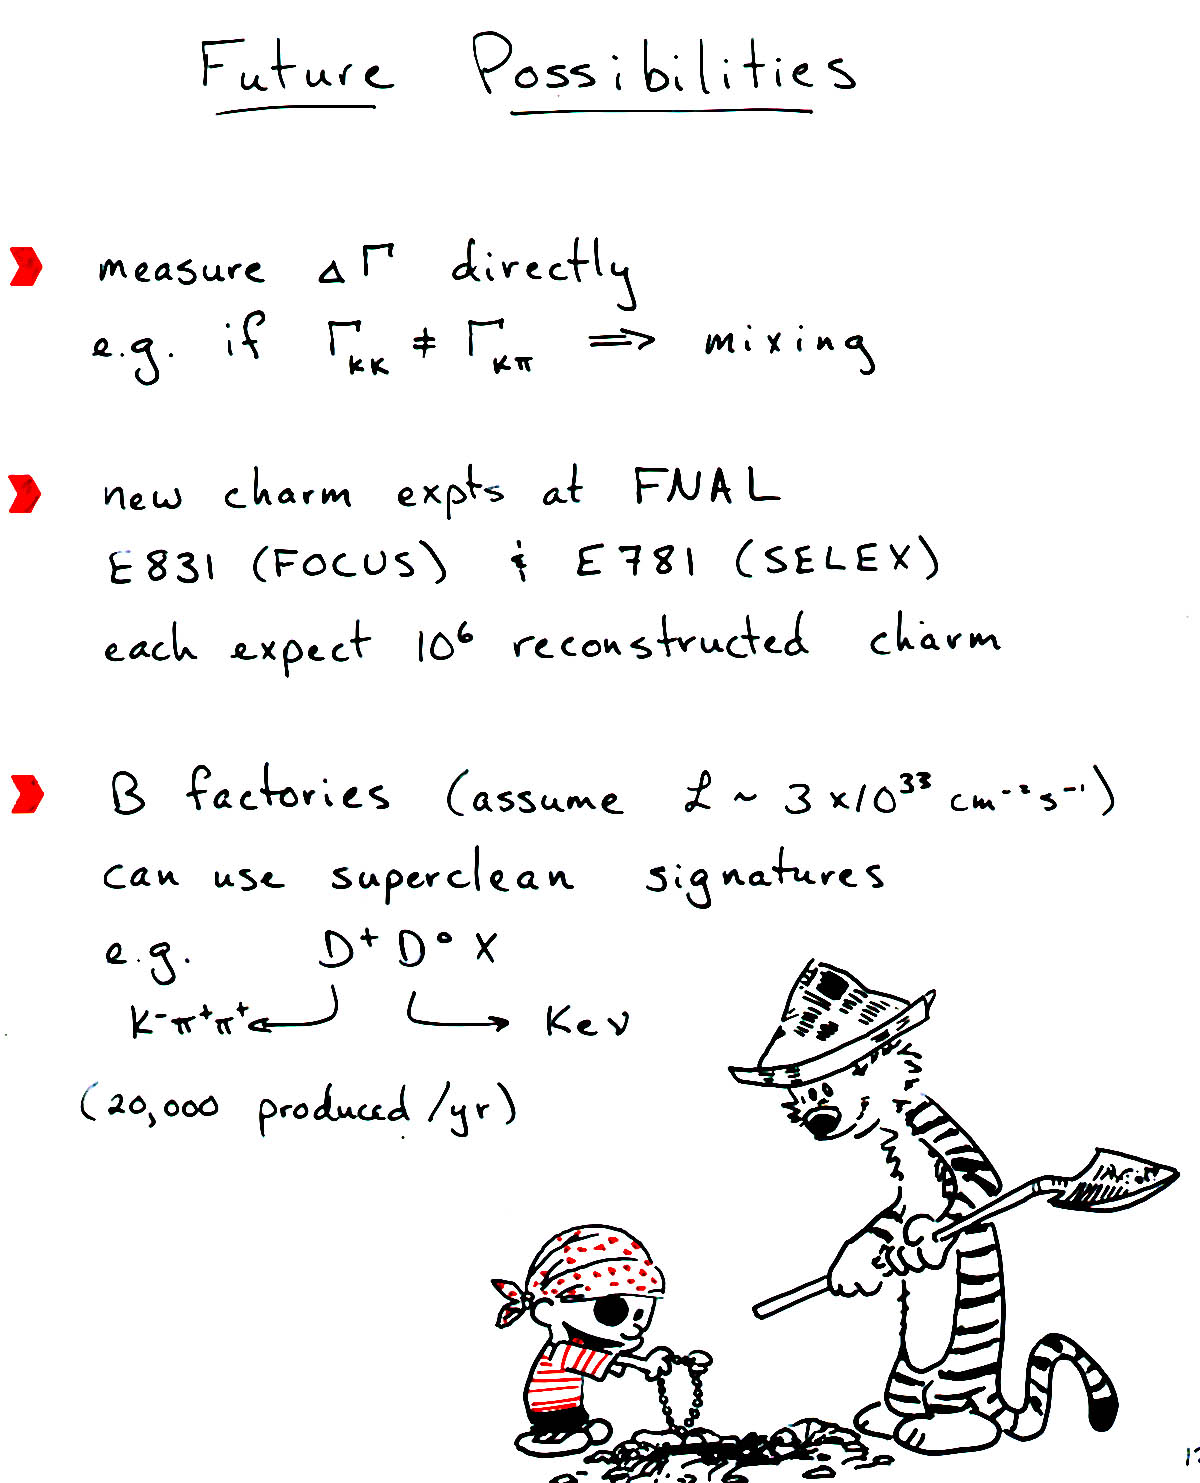 Future Possibilities
measure ΔΓ directly
e.g. if Γ_KK ≠ Γ_Kπ ⇒ mixing
new charm expts at FNAL
E831 (FOCUS) & E781 (SELEX)
each expect 10⁶ reconstructed charm
B factories (assume ℒ ~ 3 x10³³ cm⁻² s⁻¹)
can use superclean signatures
e.g. D⁺ D⁰ X
K⁻π⁺π⁺ ← → Keν
(20,000 produced/yr)